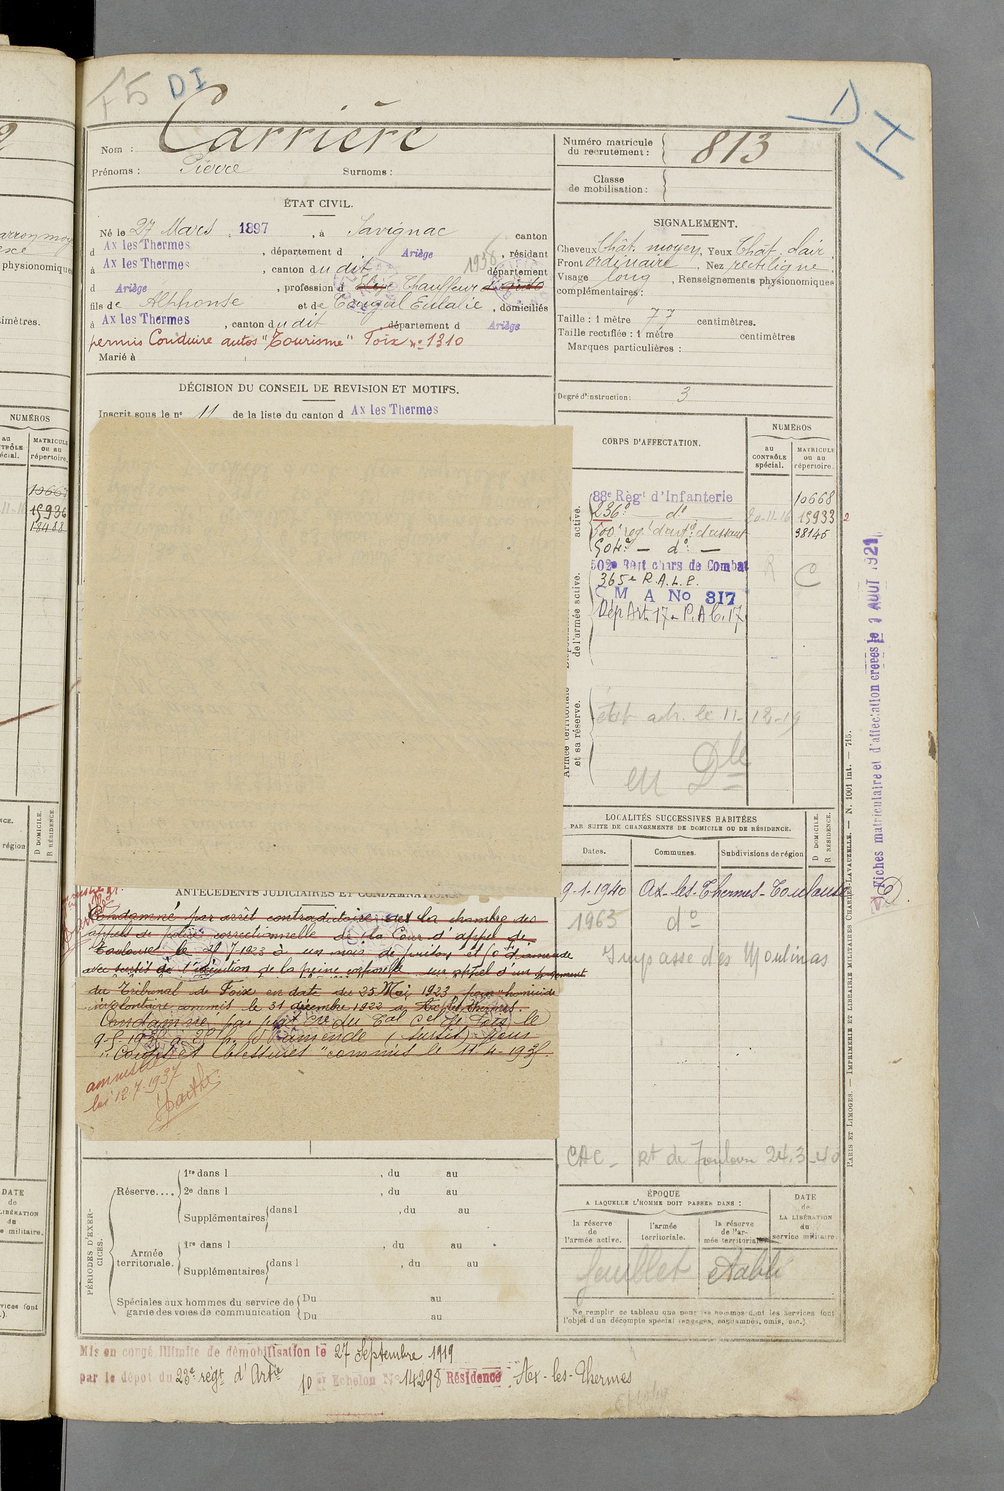 F5 DI
D.I
Nom : Carrière
Prénoms : Pierre Surnoms :
Numéro matricule du recrutement : 813
Classe de mobilisation :
ÉTAT CIVIL.
Né le 27 Mars 1897, à Savignac canton
d Ax les Thermes, département d Ariège, résidant
à Ax les Thermes, canton du dit 1936 département
d Ariège, profession d Chauffeur
fils de Alphonse et de Eulalie, domiciliés
à Ax les Thermes, canton du dit, département d Ariège
permis Conduire autos "Tourisme" Foix n° 1310
Marié à
SIGNALEMENT.
Cheveux Chât. moyen, Yeux Chât. clair
Front ordinaire, Nez rectiligne
Visage long, Renseignements physionomiques
complémentaires :
Taille : 1 mètre 77 centimètres.
Taille rectifiée : 1 mètre centimètres
Marques particulières :
Degré d'instruction : 3
DÉCISION DU CONSEIL DE REVISION ET MOTIFS.
Inscrit sous le n° 11 de la liste du canton d Ax les Thermes
CORPS D'AFFECTATION.
NUMÉROS
au CONTRÔLE spécial.
MATRICULE ou au répertoire.
active.
88e Régt d'Infanterie 10668
236e d° 20-11-16 15933 2
500e régt d'artie d'assaut 38145
504e — d° —
502e Régt chars de Combat R C
365e R.A.L.P.
C M A No 317
Dép Art. 17 - P.A.C. 17
de l'armée active.
Armée territoriale et sa réserve.
adr. le 11-12-19
en Dle
LOCALITÉS SUCCESSIVES HABITÉES
PAR SUITE DE CHANGEMENTS DE DOMICILE OU DE RÉSIDENCE.
Dates. Communes. Subdivisions de région
D DOMICILE. R RÉSIDENCE.
9-1-1940 Ax-les-Thermes - Toulouse
1963 d°
Impasse des Moulinas
CAC - Rt de Toulouse 24.3-40
ANTÉCÉDENTS JUDICIAIRES ET CONDAMNATIONS
Condamné par arrêt contradictoire de la chambre des
appels de police correctionnelle de la Cour d'appel de
Toulouse le 31-7-1923 à un mois de prison et 50 f d'amende
avec sursis de l'exécution de la peine corporelle sur appel d'un jugement
du Tribunal de Foix en date du 25 Mai 1923 pour "homicide
involontaire commis le 31 décembre 1922 à Ax les Thermes.
Condamné par jugt cre du Tal Cel de Foix le
9-5-1935 à d'amende (sursis) pour
"Coups et blessures" commis le 11-4-1935.
amnistié
loi 12-7-1937
PÉRIODES D'EXERCICES.
Réserve....
1re dans l , du au
2e dans l , du au
Supplémentaires dans l , du au
Armée territoriale.
1re dans l , du au
Supplémentaires dans l , du au
Spéciales aux hommes du service de garde des voies de communication
Du au
Du au
ÉPOQUE
A LAQUELLE L'HOMME DOIT PASSER DANS :
la réserve de l'armée active.
l'armée territoriale.
la réserve de l'armée territoriale.
DATE de LA LIBÉRATION du service militaire.
feuillet établi
Ne remplir ce tableau que pour les hommes dont les services font
l'objet d'un décompte spécial (engagés, exemptés, omis, etc.).
Mis en congé illimité de démobilisation le 27 Septembre 1919
par le dépôt du 23e régt d'Artie 10e Echelon N° 14298 Résidence Ax-les-Thermes
Fiches matriculaire et d'affectation créées le 1 AOUT 1921
PARIS ET LIMOGES. — IMPRIMERIE ET LIBRAIRIE MILITAIRES CHARLES-LAVAUZELLE. — N. 1001 int. — 715.
physionomiques
NUMÉROS
au CONTRÔLE spécial.
MATRICULE ou au répertoire.
15936
DATE de LIBÉRATION du militaire.